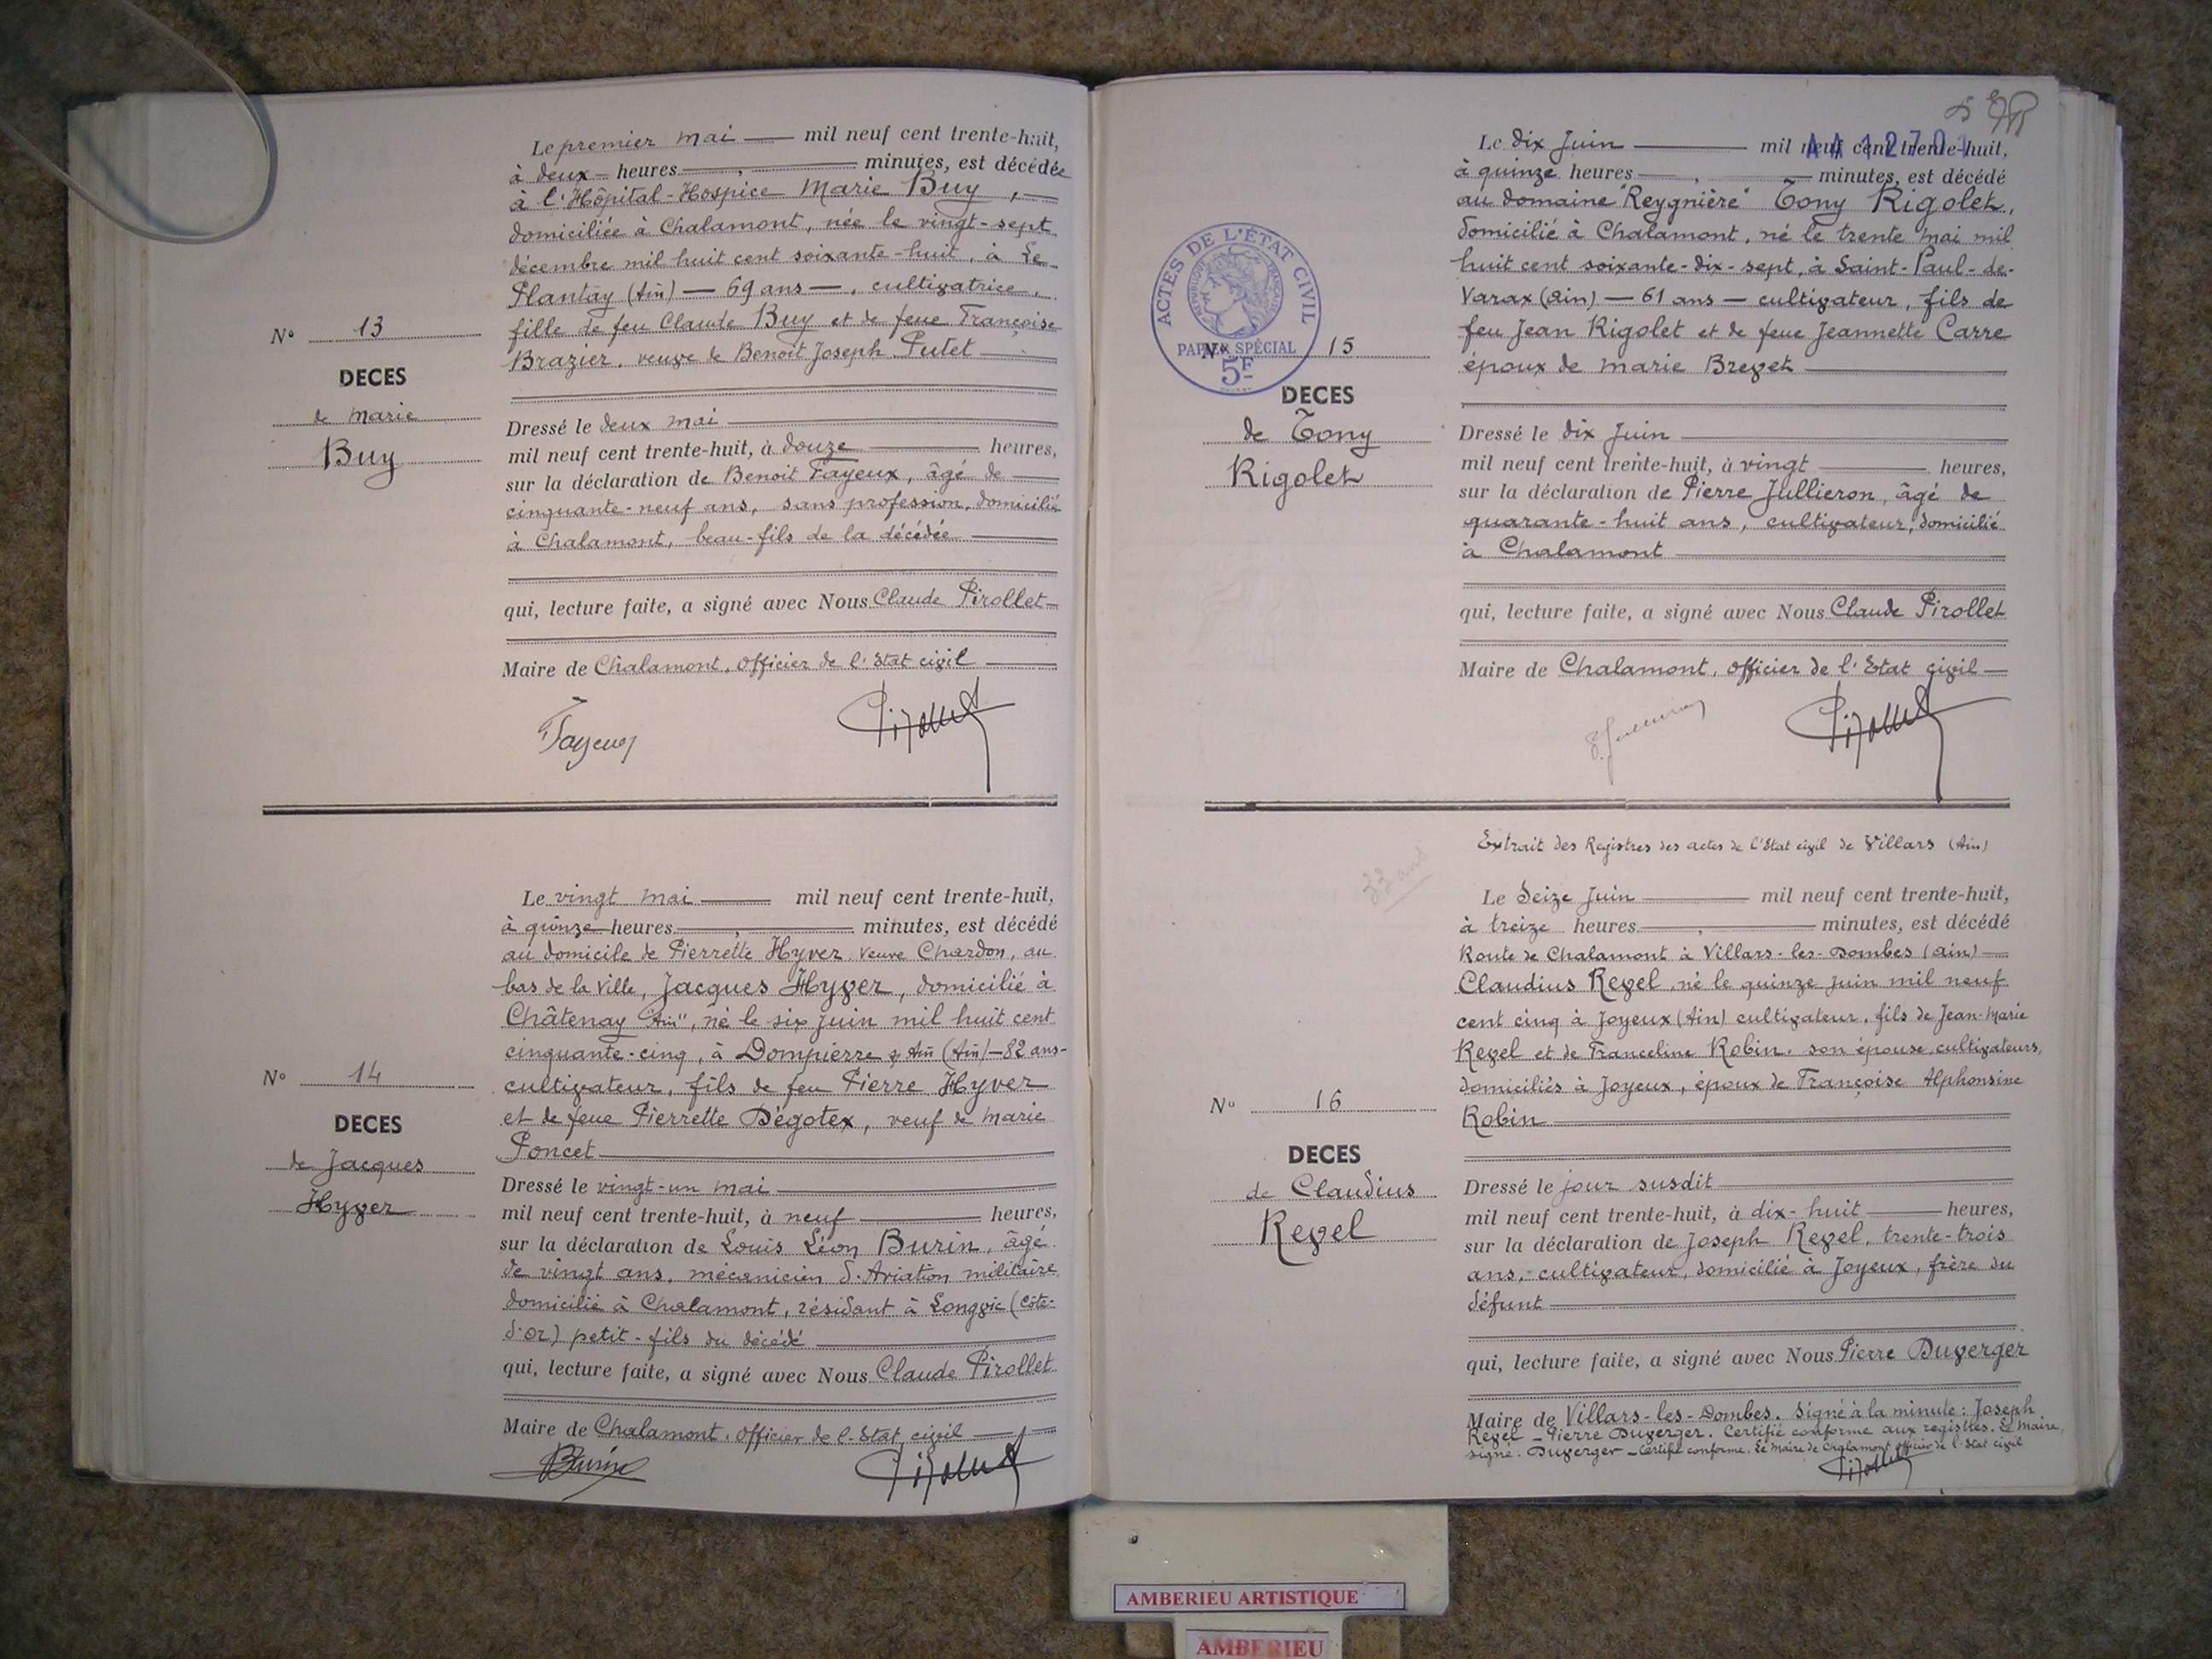 Le premier mai — mil neuf cent trente-huit,
à deux heures —, — minutes, est décédée
à l'Hôpital-Hospice Marie Buy, —
domiciliée à Chalamont, née le vingt-sept
décembre mil huit cent soixante-huit, à Le
Plantay (Ain) — 69 ans —, cultivatrice,
fille de feu Claude Buy et de feue Françoise
Brazier, veuve de Benoit Joseph Putet —
Nº 13
DECES
de Marie
Buy
Dressé le deux mai —
mil neuf cent trente-huit, à douze — heures,
sur la déclaration de Benoit Fayeux, âgé de —
cinquante-neuf ans, sans profession, domicilié
à Chalamont, beau-fils de la décédée —
qui, lecture faite, a signé avec Nous Claude Pirollet —
Maire de Chalamont, Officier de l'Etat civil —
Fayeux Pirollet
Le vingt mai — mil neuf cent trente-huit,
à quinze heures —, — minutes, est décédé
au domicile de Pierrette Hyver veuve Chardon, au
bas de la Ville, Jacques Hyver, domicilié à
Châtenay "Ain", né le six juin mil huit cent
cinquante-cinq, à Dompierre s/ Ain (Ain) — 82 ans —
cultivateur, fils de feu Pierre Hyver
et de feue Pierrette Dégotex, veuf de Marie
Poncet —
Nº 14
DECES
de Jacques
Hyver
Dressé le vingt-un mai —
mil neuf cent trente-huit, à neuf — heures,
sur la déclaration de Louis Léon Burin, âgé
de vingt ans, mécanicien d'Aviation militaire
domicilié à Chalamont, résidant à Longvic (Côte-
d'or) petit-fils du décédé —
qui, lecture faite, a signé avec Nous Claude Pirollet
Maire de Chalamont, Officier de l'Etat civil —
Burin Pirollet
Le dix Juin — mil neuf cent trente-huit,
à quinze heures —, — minutes, est décédé
au domaine "Reygnière" Tony Rigolet,
domicilié à Chalamont, né le trente mai mil
huit cent soixante-dix-sept, à Saint-Paul-de-
Varax (Ain) — 61 ans — cultivateur, fils de
feu Jean Rigolet et de feue Jeannette Carre
époux de Marie Brevet —
ACTES DE L'ÉTAT CIVIL
RÉPUBLIQUE FRANÇAISE
PAPIER SPÉCIAL
5F
Nº 15
DECES
de Tony
Rigolet
Dressé le dix Juin —
mil neuf cent trente-huit, à vingt — heures,
sur la déclaration de Pierre Jullieron, âgé de
quarante-huit ans, cultivateur, domicilié
à Chalamont —
qui, lecture faite, a signé avec Nous Claude Pirollet
Maire de Chalamont, Officier de l'Etat civil —
Pirollet
33 ans
Extrait des Registres des actes de l'Etat civil de Villars (Ain)
Le Seize Juin — mil neuf cent trente-huit,
à treize heures —, — minutes, est décédé
Route de Chalamont à Villars-les-Dombes (Ain) —
Claudius Revel, né le quinze juin mil neuf
cent cinq à Joyeux (Ain) cultivateur, fils de Jean-Marie
Revel et de Franceline Robin, son épouse, cultivateurs,
domiciliés à Joyeux, époux de Françoise Alphonsine
Robin —
Nº 16
DECES
de Claudius
Revel
Dressé le jour susdit —
mil neuf cent trente-huit, à dix-huit — heures,
sur la déclaration de Joseph Revel, trente-trois
ans, cultivateur, domicilié à Joyeux, frère du
défunt —
qui, lecture faite, a signé avec Nous Pierre Duverger
Maire de Villars-les-Dombes. Signé à la minute: Joseph
Revel — Pierre Duverger. Certifié conforme aux registres. Le Maire,
signé: Duverger — Certifié conforme. Le Maire de Chalamont officier de l'Etat civil
Pirollet
AMBERIEU ARTISTIQUE
AMBERIEU